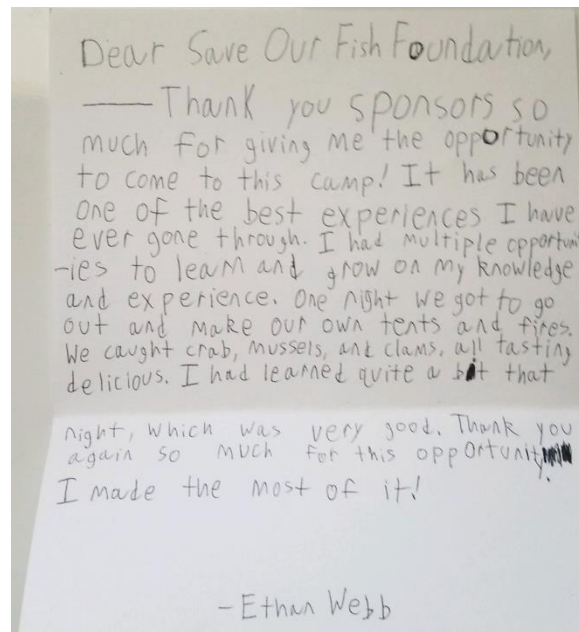 Dear Save Our Fish Foundation,
—— Thank you sponsors so
much for giving me the opportunity
to come to this camp! It has been
one of the best experiences I have
ever gone through. I had multiple opportuni
-ies to learn and grow on my knowledge
and experience. One night we got to go
out and make our own tents and fires.
We caught crab, mussels, and clams, all tasting
delicious. I had learned quite a bit that
night, which was very good. Thank you
again so much for this opportunity.
I made the most of it!
- Ethan Webb